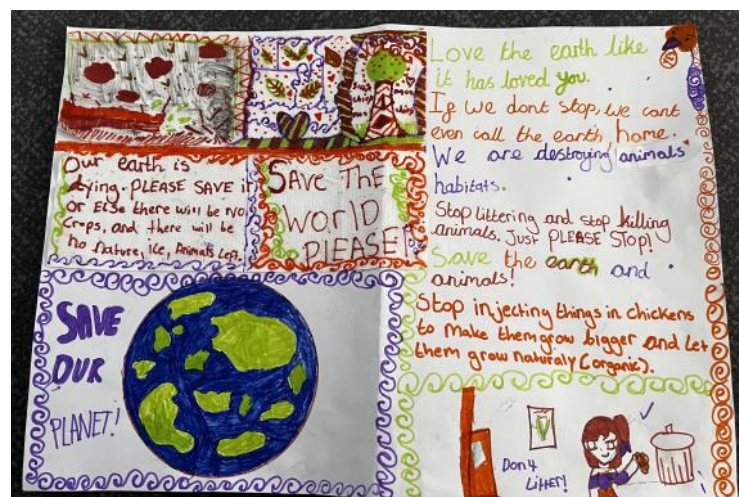 Our earth is
dying. PLEASE SAVE it
Or Else there will be NO
Crops, and there will be
no Nature, ice, Animals Left.
SAVE THE
WORLD
PLEASE!
SAVE
OUR
PLANET!
Love the earth like
it has loved you.
If we dont stop, we cant
even call the earth home.
We are destroying animals'
habitats.
Stop littering and stop killing
animals. Just PLEASE STOP!
Save the earth and
animals!
Stop injecting things in chickens
to make them grow bigger and let
them grow naturaly (organic).
Don't
LitTER!